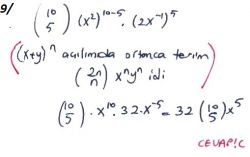 9/
(10 5) (x²)^10-5 . (2x^-1)^5
((x+y)^n açılımda ortanca terim
(2n n) x^n y^n idi)
(10 5) . x^10 . 32 . x^-5 = 32 (10 5) x^5
CEVAP: C